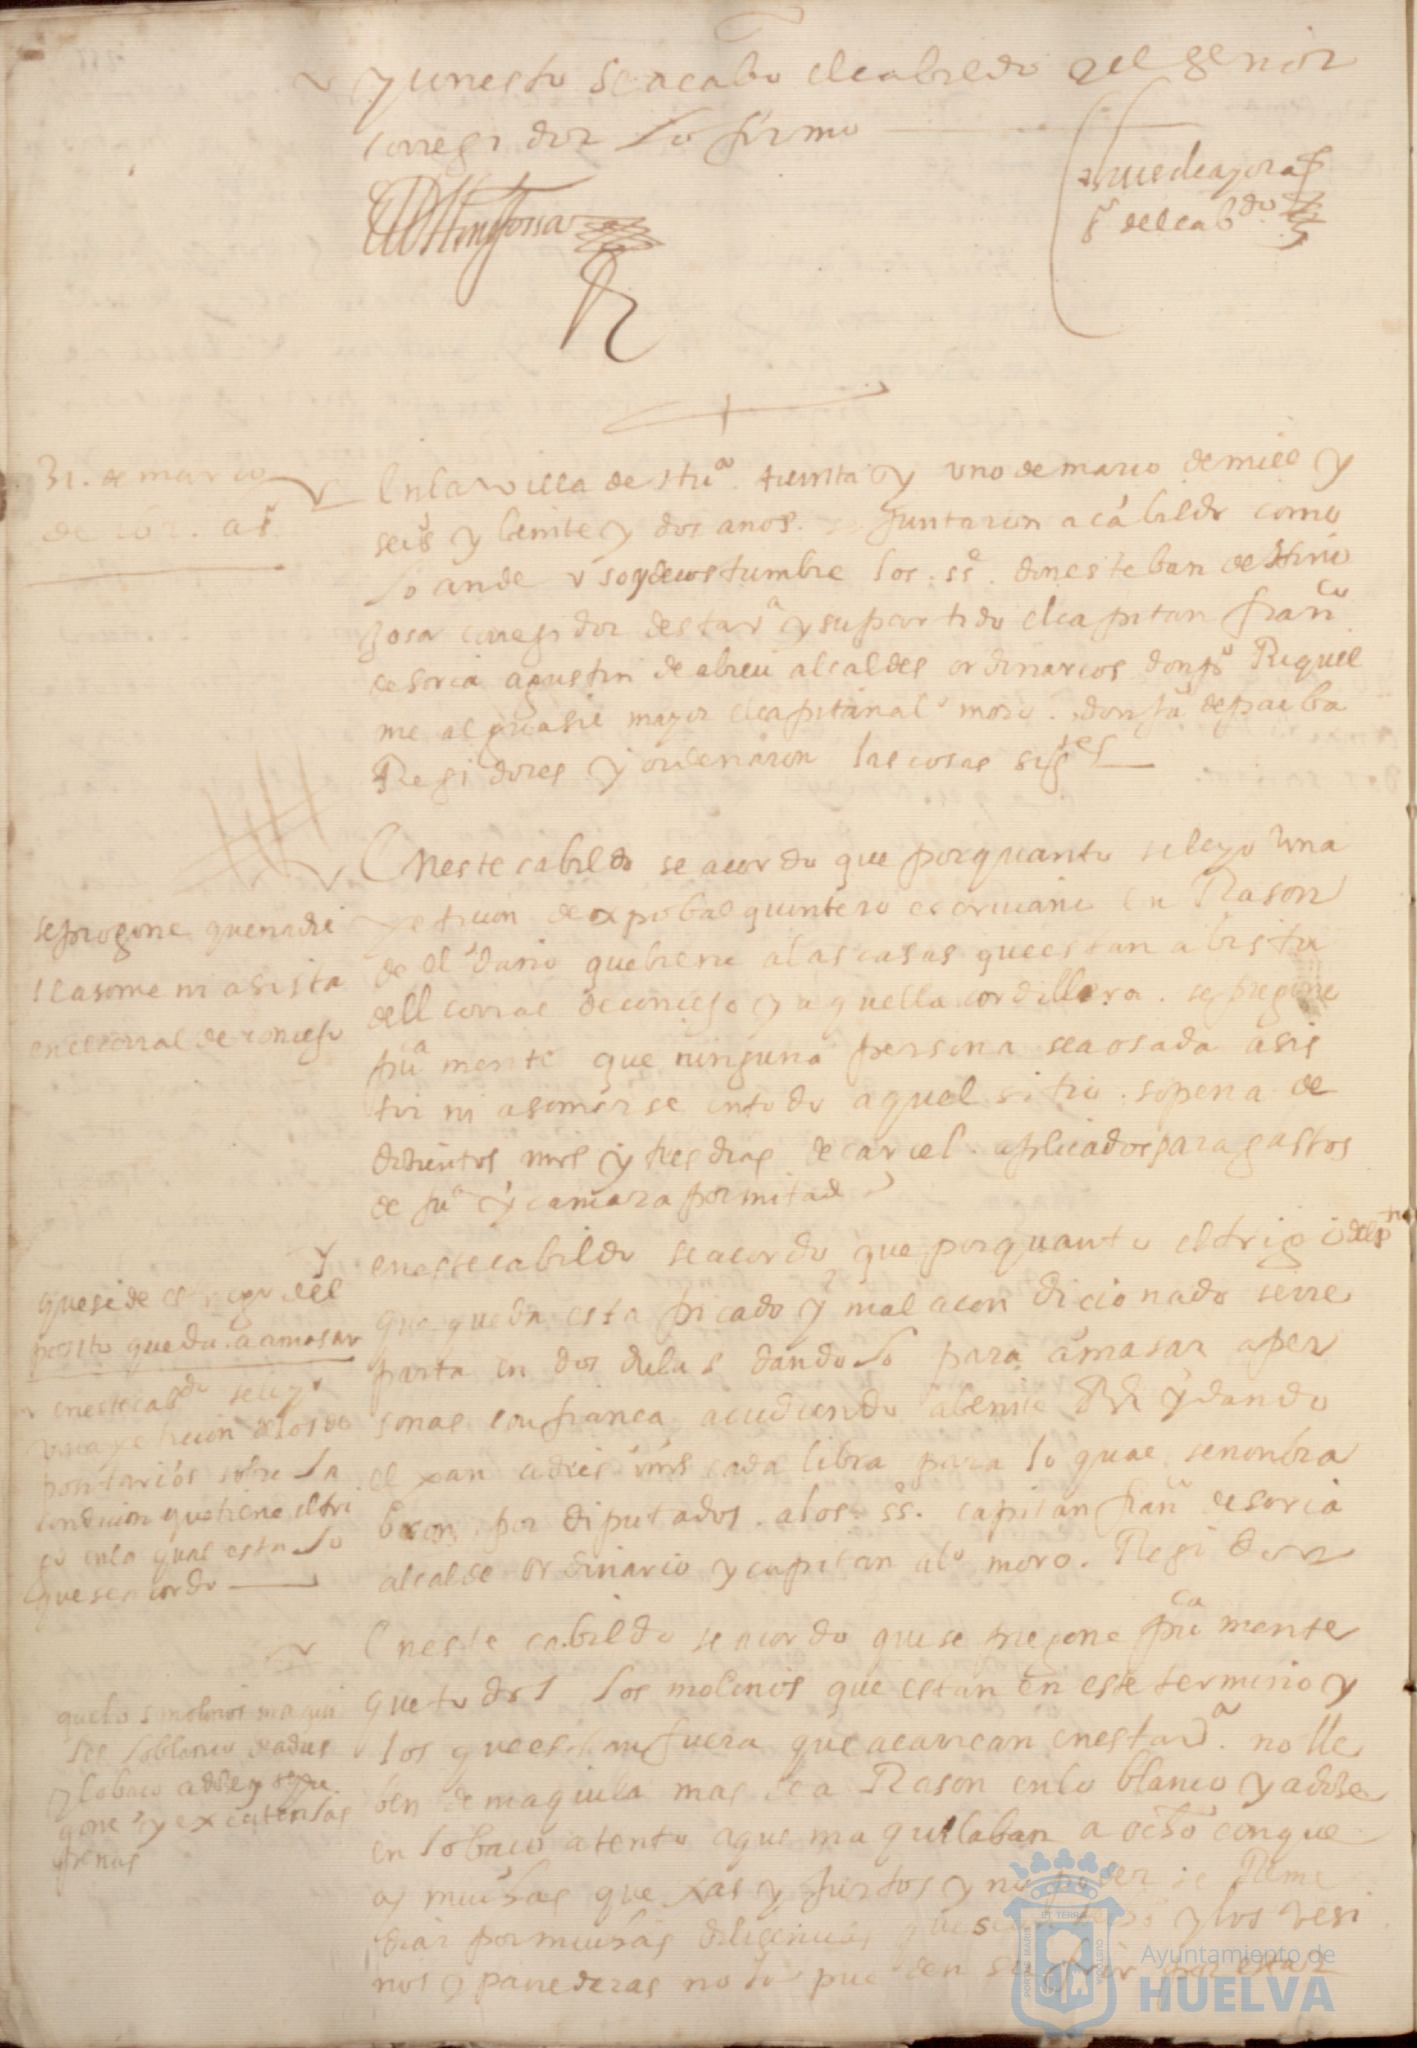 y con esto se acabo el cabildo y el señor
corregidor lo firmo
D Hinojosa
de çayoras
sº del cabdo
31. de março
de 622. aˢ.
En la villa de Huª. treinta y uno de março de mill y
seisº y beinte y dos anos. se juntaron a cabildo como
lo an de uso y de costumbre los. ssº. don esteban de Hino
josa corregidor desta vª y su partido el capitan franco
de soria agustin de abreu alcaldes ordinarios don jº Riquel
me alguasil mayor el capitan alº moro. don juº de paiba
Regidores y ordenaron las cosas sigtes
se pregone que nadie
se asome ni asista
en el corral de consejo
En este cabildo se acordo que por quanto se leyo una
peticion de xpobal quintero escriuano en Rason
de el daño que biene a las casas que estan a bista
dell corral de consejo y aquella cordillera. se pregone
puca mente que ninguna persona sea osada asis
tir ni asomarse en todo aquel sitio. so pena de
dusientos mrs y tres dias de carcel. aplicados para gastos
de juª y camara por mitad
que se de el trigo del
posito que da. a amasar
en este cabdo se leyo
una peticion de los de
positarios sobre la
condicion que tiene el tri
go en la qual esta lo
que se acordo
en este cabildo se acordo que por quanto el trigo del pto
que queda esta picado y mal acondicionado se rre
parta en dos dulas dandolo para amasar a per
sonas con fiança acudiendo a beinte Rs y dando
el pan a dies mrs cada libra para lo qual se nombra
bron. por diputados. a los. ssº. capitan franº de soria
alcalde ordinario y capitan alº moro. Regidor
que los molinos maqui
len lo blanco
y lo baço a dose y se pre
gone y executen las
penas
En este cabildo se acordo que se pregone puca mente
que todos los molinos que estan en este termino y
los que estan fuera que acarrean en esta vª. no lle
ben de maquila mas de a Rason en lo blanco y a dose
en lo baço atento a que maquilaban a ocho con que
ay muchas quexas y hurtos y no poder se Reme
diar por muchas diligencias que se an hecho y los vesi
nos y panederas no lo pueden sufrir por estar
Ayuntamiento de
HUELVA